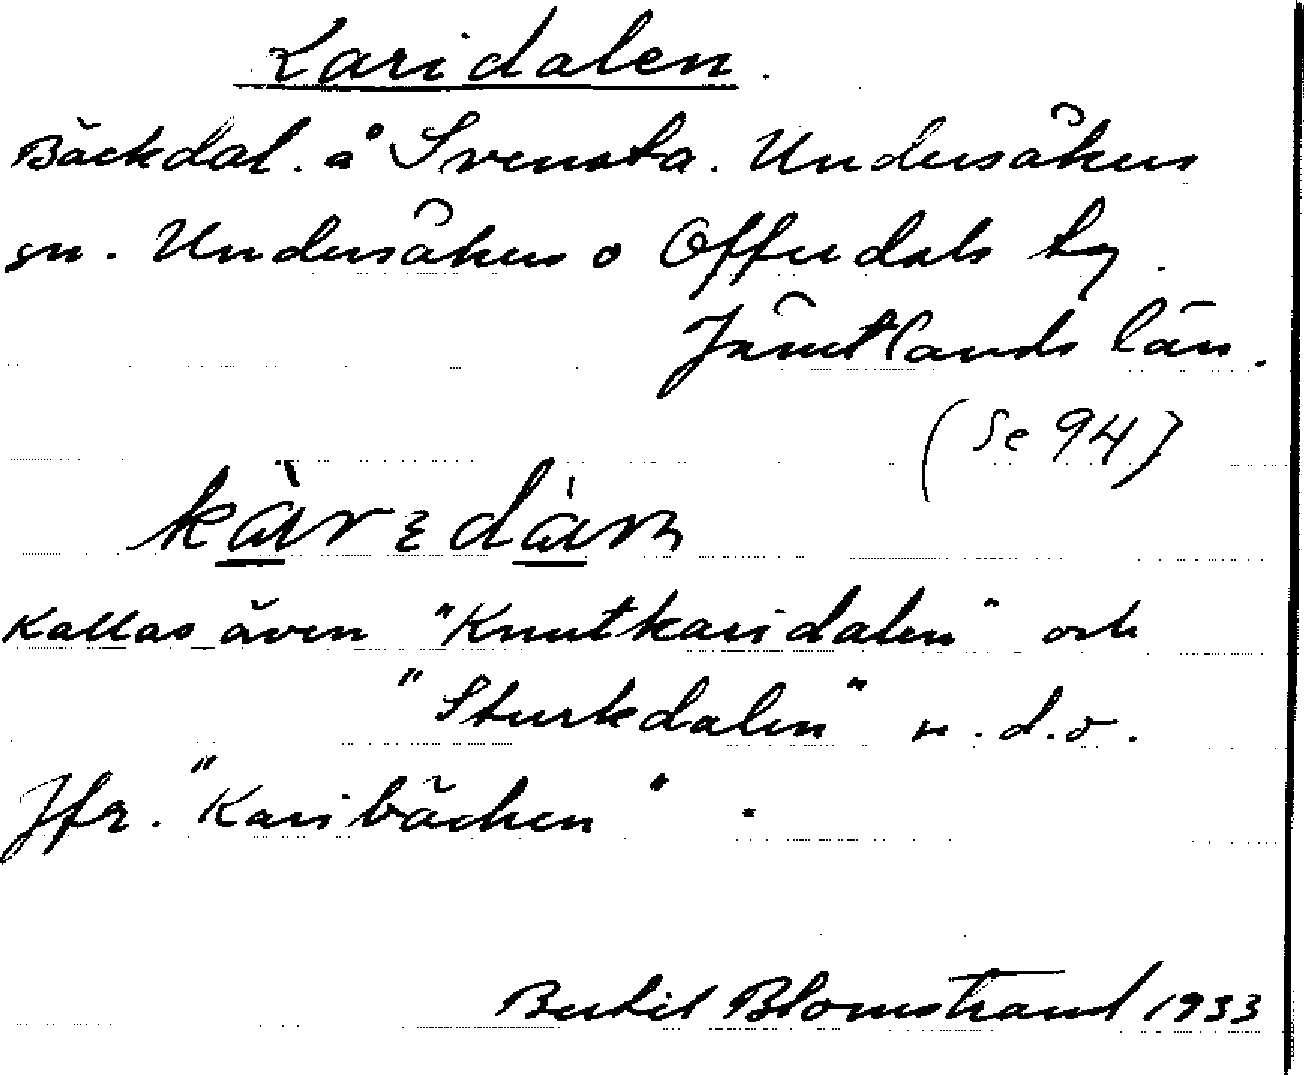 Karidalen.
Bäckdal. å Svensta. Undersåkers
sn. Undersåkers o Offerdals tg.
Jämtlands län.
(Se 94)
Kallas även "Knutkaridalen" och
"Sturkdalen" n.d.o.
Jfr. "Karibäcken".
Bertil Blomstrand 1933